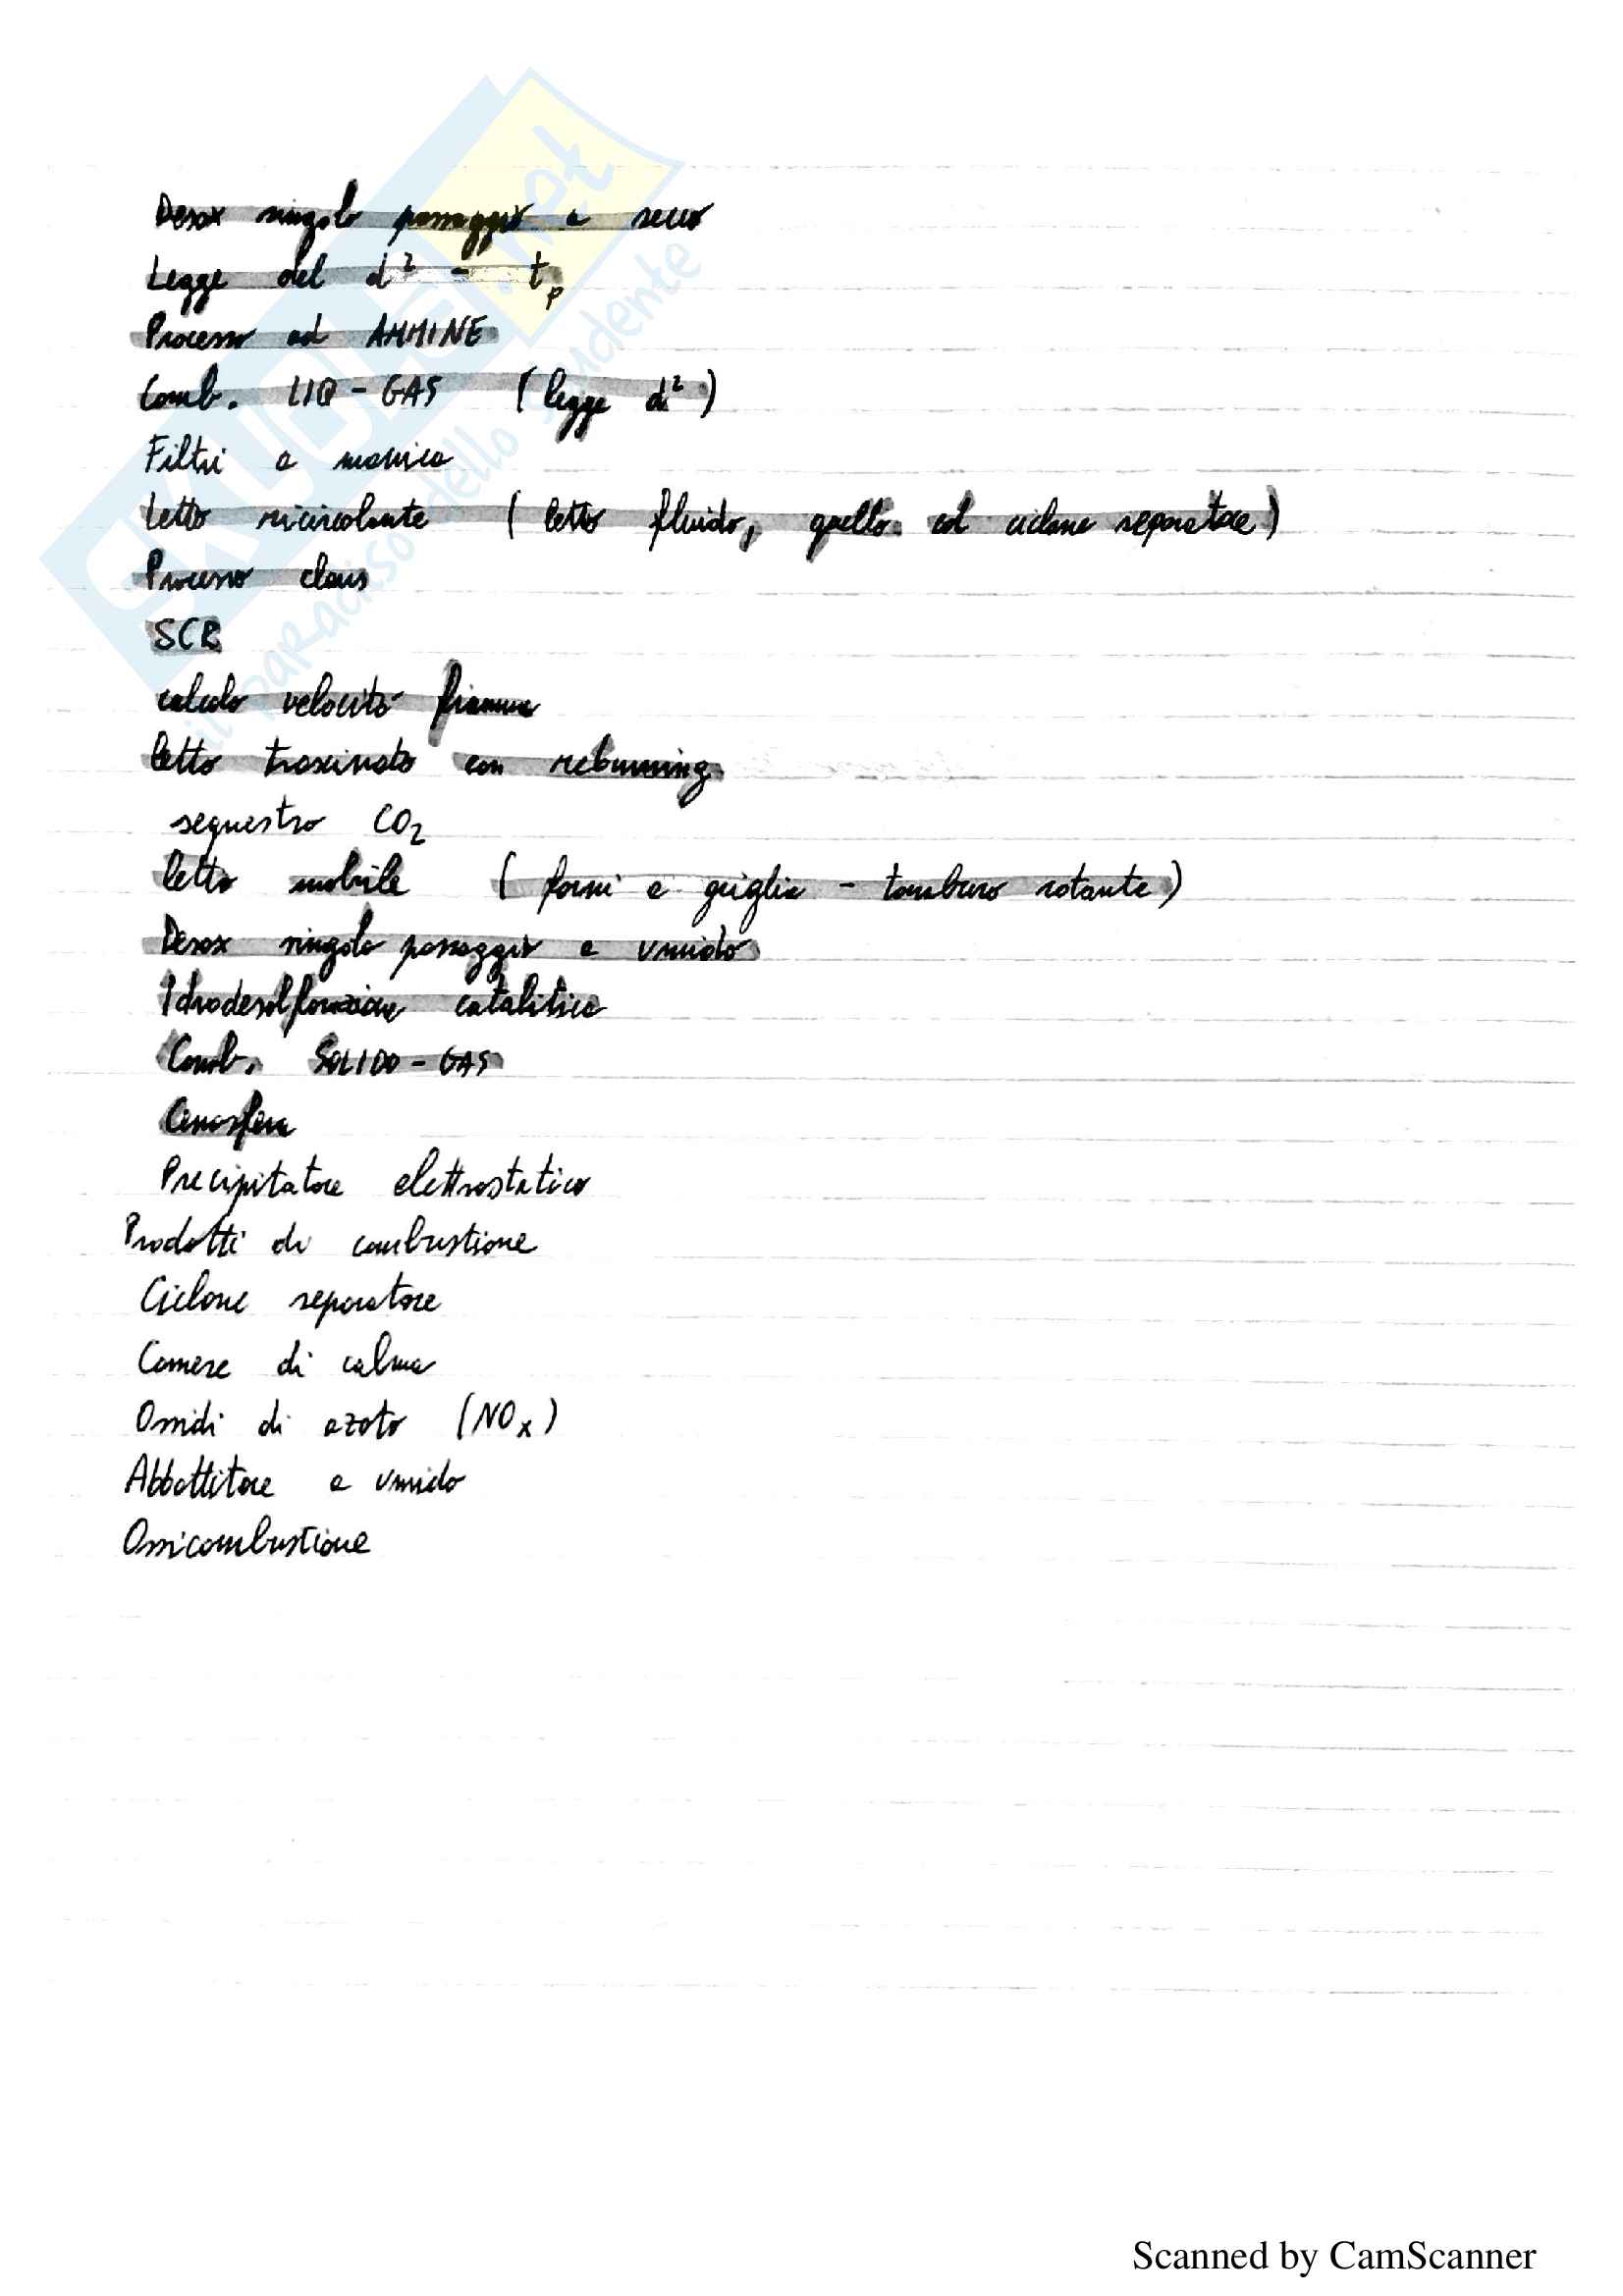 Desox singolo passaggio a secco
Legge del d² - tp
Processo ad AMMINE
Comb. LIQ - GAS (legge d²)
Filtri a manica
Letto ricircolante (letto fluido, quello col ciclone separatore)
Processo claus
SCR
calcolo velocità fiamma
letto trascinato con reburning
sequestro CO₂
letto mobile (forni a griglia - tamburo rotante)
Desox singolo passaggio a umido
Idrodesolforazione catalitica
Comb. SOLIDO - GAS
Cenosfere
Precipitatore elettrostatico
Prodotti di combustione
Ciclone separatore
Camere di calma
Ossidi di azoto (NOx)
Abbattitore a umido
Ossicombustione
SKUOLA.net
il paradiso dello studente
Scanned by CamScanner